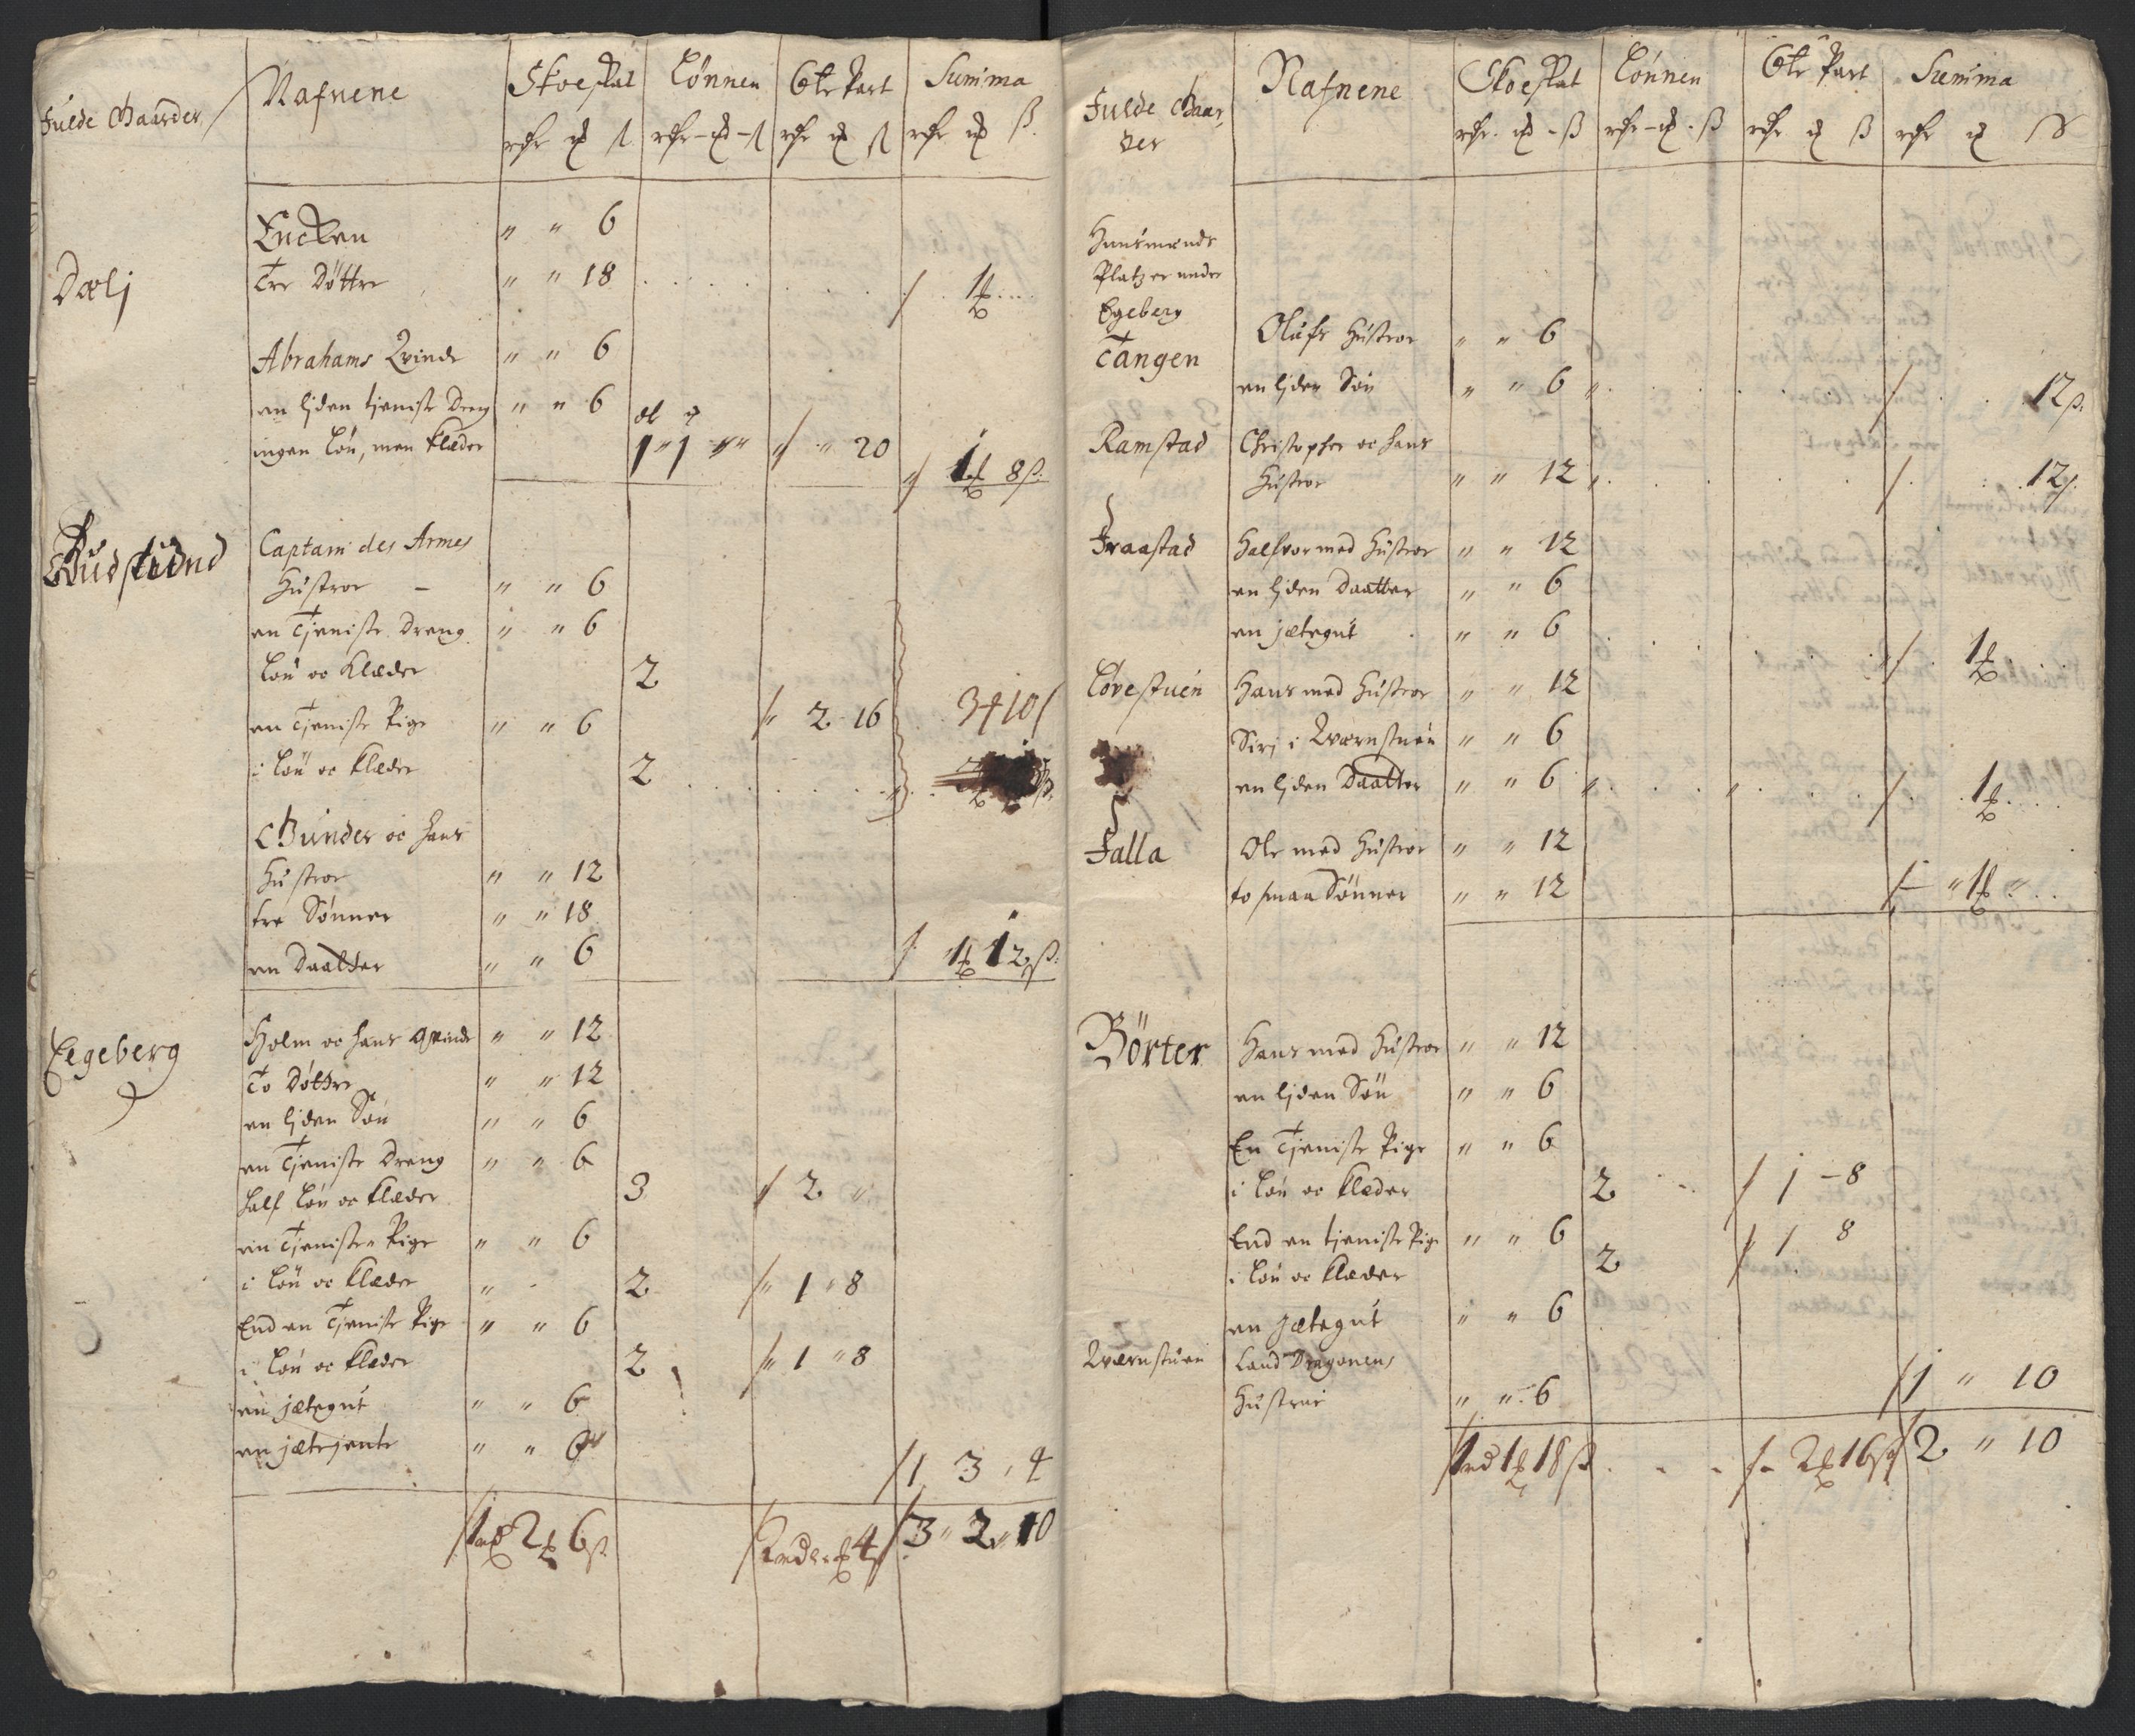 Fulde Gaarder
Nafnene
Skoeskat
Lönnen
6te Part
Summa
rdr ß
Encken " " 6
Dælj
Tre Döttre " " 18
1
Abrahams Qvinde " " 6
en liden tieniste Dreng " " 6
ingen Lön, men Klæder 1 " 1 " " " 20
1 8 ß
Rudstund
Captain des Armes
Hustroe - " " 6
en Tjeniste Dreng " " 6
Lön oc Klæder 2
en Tjeniste Pige " " 6
2 16
3 10
i Lön oc Klæder 2
Gunder oc hans
Hustroe " " 12
tre Sönner " " 18
en Daatter " " 6
1 12 ß
Eegeberg
Holm oc hans Qvinde " " 12
To Döttre " " 12
en liden Sön " " 6
en Tjeniste Dreng " " 6
half Lön oc Klæder 3 2 "
en Tjeniste Pige " " 6
i Lön oc Klæder 2 1 " 8
End en Tjeniste Pige " " 6
i Lön oc Klæder 2 1 " 8
en jætegut " " 6
en jætejente " " 6
1 3 4
1 2 6 ß
4
3 " 2 " 10
Fulde Gaar
der
Nafnene
Skoeskat
Lönnen
6te Part
Summa
rdr ß
Huusmænds
Platzer under
Egeberg
Tangen
Olufs Hustroe " " 6
en liden Sön " " 6
12 ß
Ramstad
Christopher oc hans
Hustroe " " 12
12 ß
Fraastad
Halfvor med Hustroe " " 12
en liden Daatter " " 6
en jætegut " " 6
1
Lövestuen
Hans med Hustroe " " 12
Siri i Qværnstuen " " 6
en liden Daatter " " 6
1
Falla
Ole med Hustroe " " 12
to smaa Sönner " " 12
1
Börter
Hans med Hustroe " " 12
en liden Sön " " 6
En Tjeniste Pige " " 6
i Lön oc Klæder 2 1 - 8
End en tjeniste Pige " " 6
i Lön oc Klæder 2 1 8
en Jætegut " " 6
Qværnstuen
Land Dragonens
Hustrue " " 6
1 " 10
1 rd 1 18 ß
2 16 ß
2 " 10